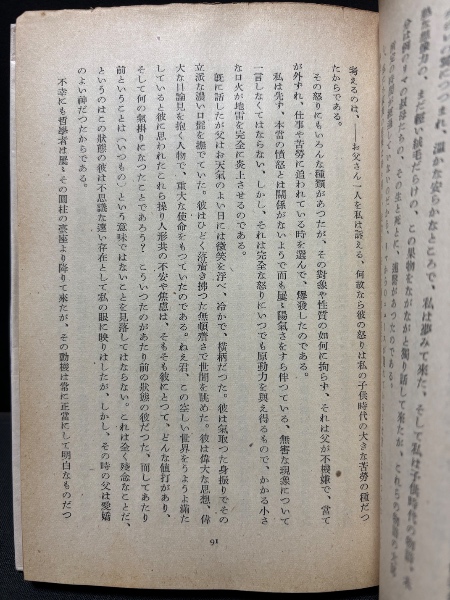 考えるのは、――お父さん一人を私は訴える、何故なら彼の怒りは私の子供時代の大きな苦勞の種だつ
たからである。
その怒りにもいろんな種類があつたが、その對象や性質の如何に拘らず、それは父が不機嫌で、當て
が外ずれ、仕事や苦勞に追われている時を選んで、爆發したのである。
私は先ず、本當の憤怒とは關係がないようで而も屢〻陽氣さをすら伴つている、無審な現象について
一言しなくてはならない、しかし、それは完全な怒りにいつでも原動力を與え得るもので、かかる小さ
な口火が地雷を完全に炎上させるのである。
既に話したが父はお天氣のよい日には微笑を浮べ、冷かで、橫柄だつた。彼は氣取つた身振りでその
立派な濃い口髭を撫でていた。彼はひどく落着き拂つた無頓着さで世間を眺めた。彼は偉大な思想、偉
大な目論見を抱く人物で、重大な使命をもつていたのである。ねえ君、この空しい世界をうようよ滿た
しているると彼に思われたこれら操り人形共の不安や焦慮は、そもそも彼にとつて、どんな値打があり、
そして何の氣掛りになつたことであろう？こういつたのがあたり前の狀態の彼だつた、而してあたり
前ということは（いつもの）という意味ではないことを見落してはならない。これは全く殘念なことだ、
というのはこの狀態の彼は不思議な遠い存在として私の眼に映りはしたが、しかし、その時の父は愛嬌
のよい神だつたからである。
不幸にも哲學者は屢〻その圓柱の臺座より降りて來たが、その動機は常に正當にして明白なものだつ
91